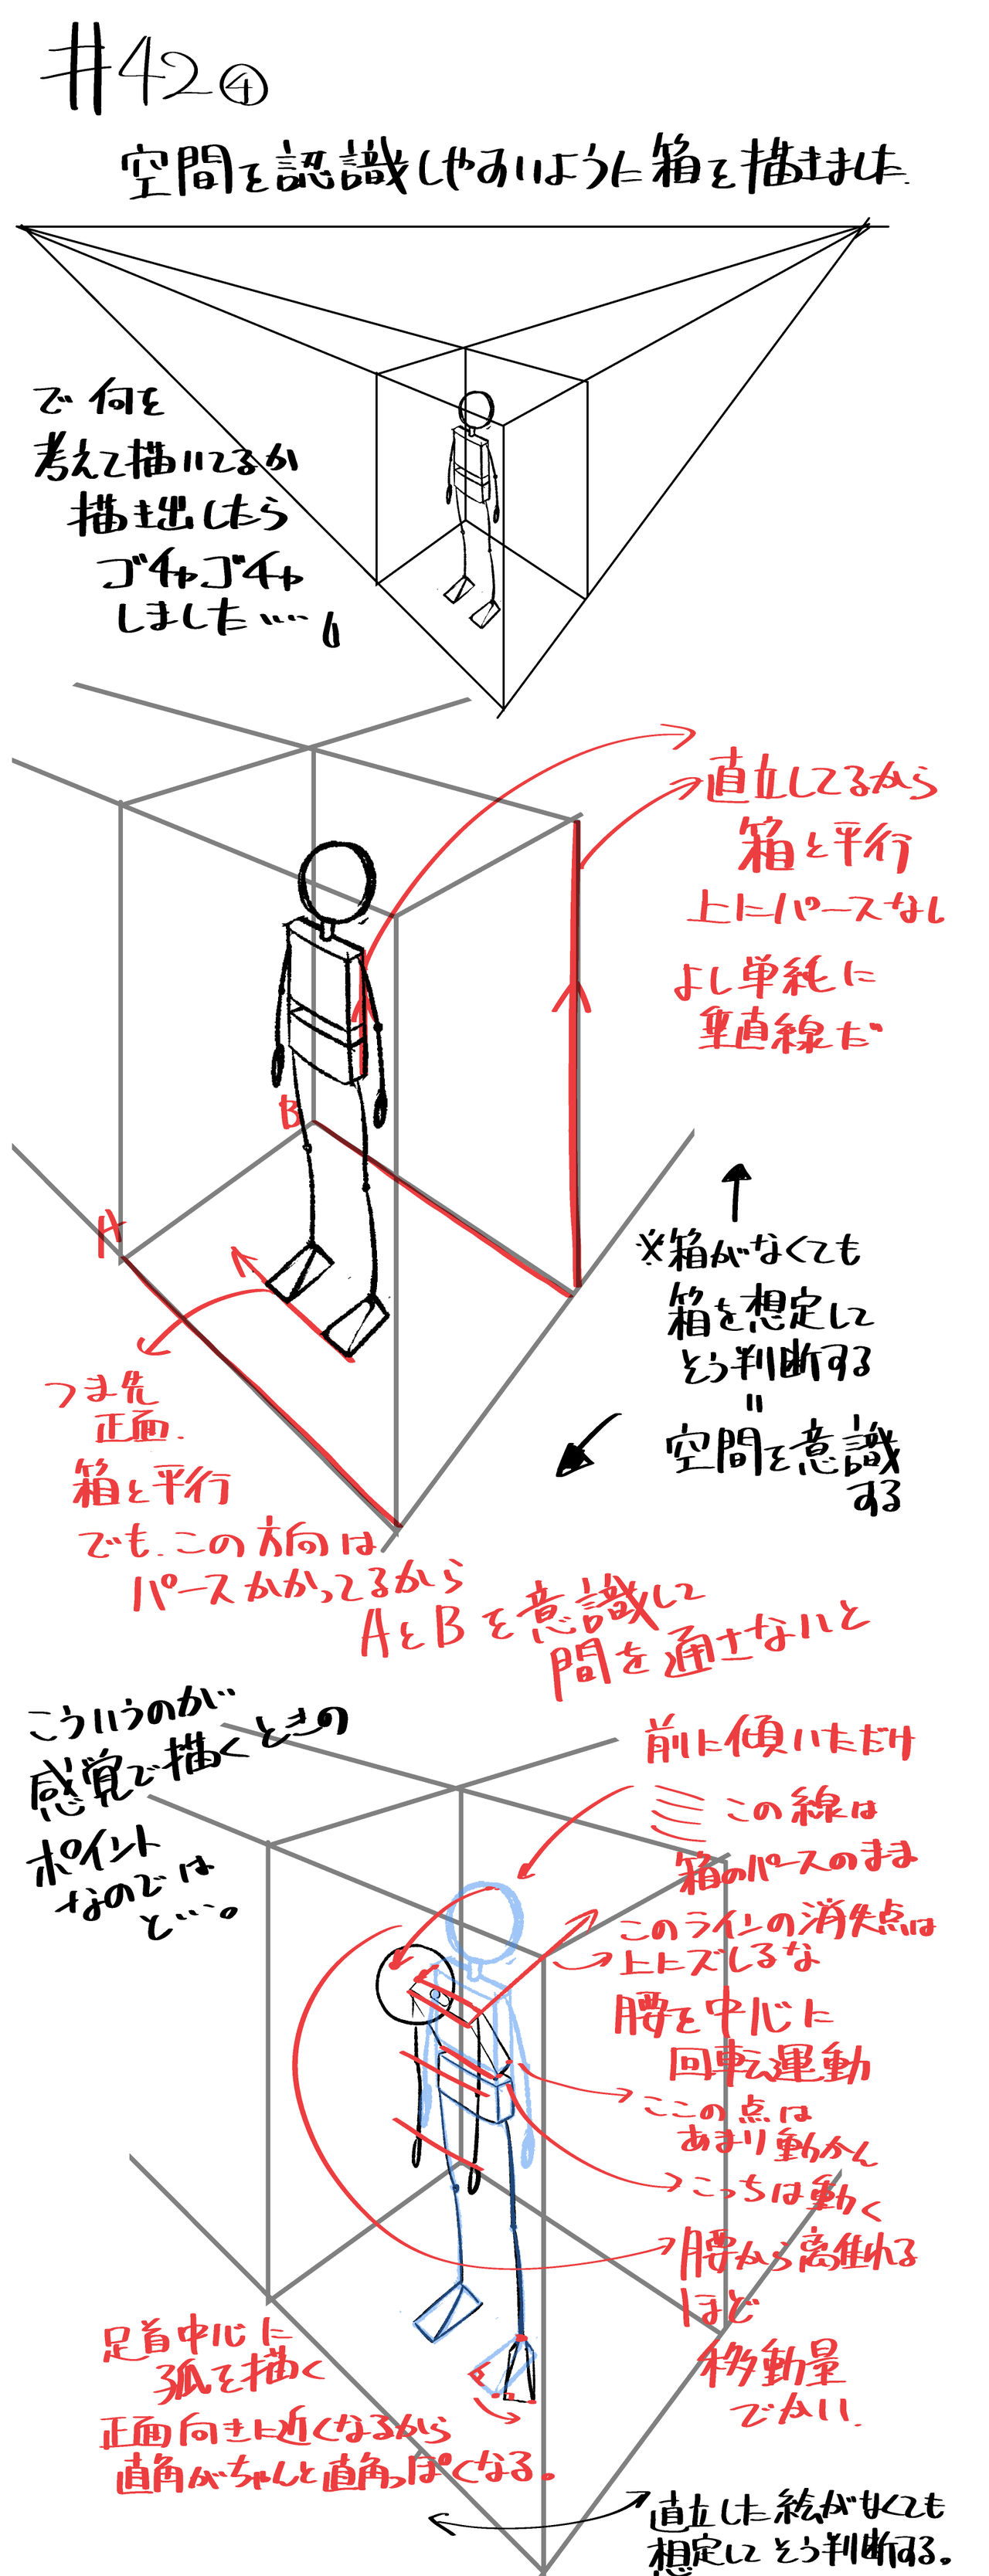 #42④
空間を認識しやすいように箱を描きました.
で 何を
考えて描いてるか
描き出したら
ゴチャゴチャ
しました……
直立してるから
箱と平行
上にパースなし
よし単純に
垂直線だ
B
A
※箱がなくても
箱を想定して
そう判断する
=
空間を意識
する
つま先
正面.
箱と平行
でも.この方向は
パースかかってるから
AとBを意識して
間を通さないと
こういうのが
感覚で描くときの
ポイント
なのでは
と…。
前に傾いただけ
この線は
箱のパースのまま
このラインの消失点は
上にズレるな
腰を中心に
回転運動
ここの点は
あまり動かん
こっちは動く
腰から離れる
ほど
移動量
でかい.
足首中心に
弧を描く
正面向きに近くなるから
直角がちゃんと直角っぽくなる。
直立した絵がなくても
想定して そう判断する。